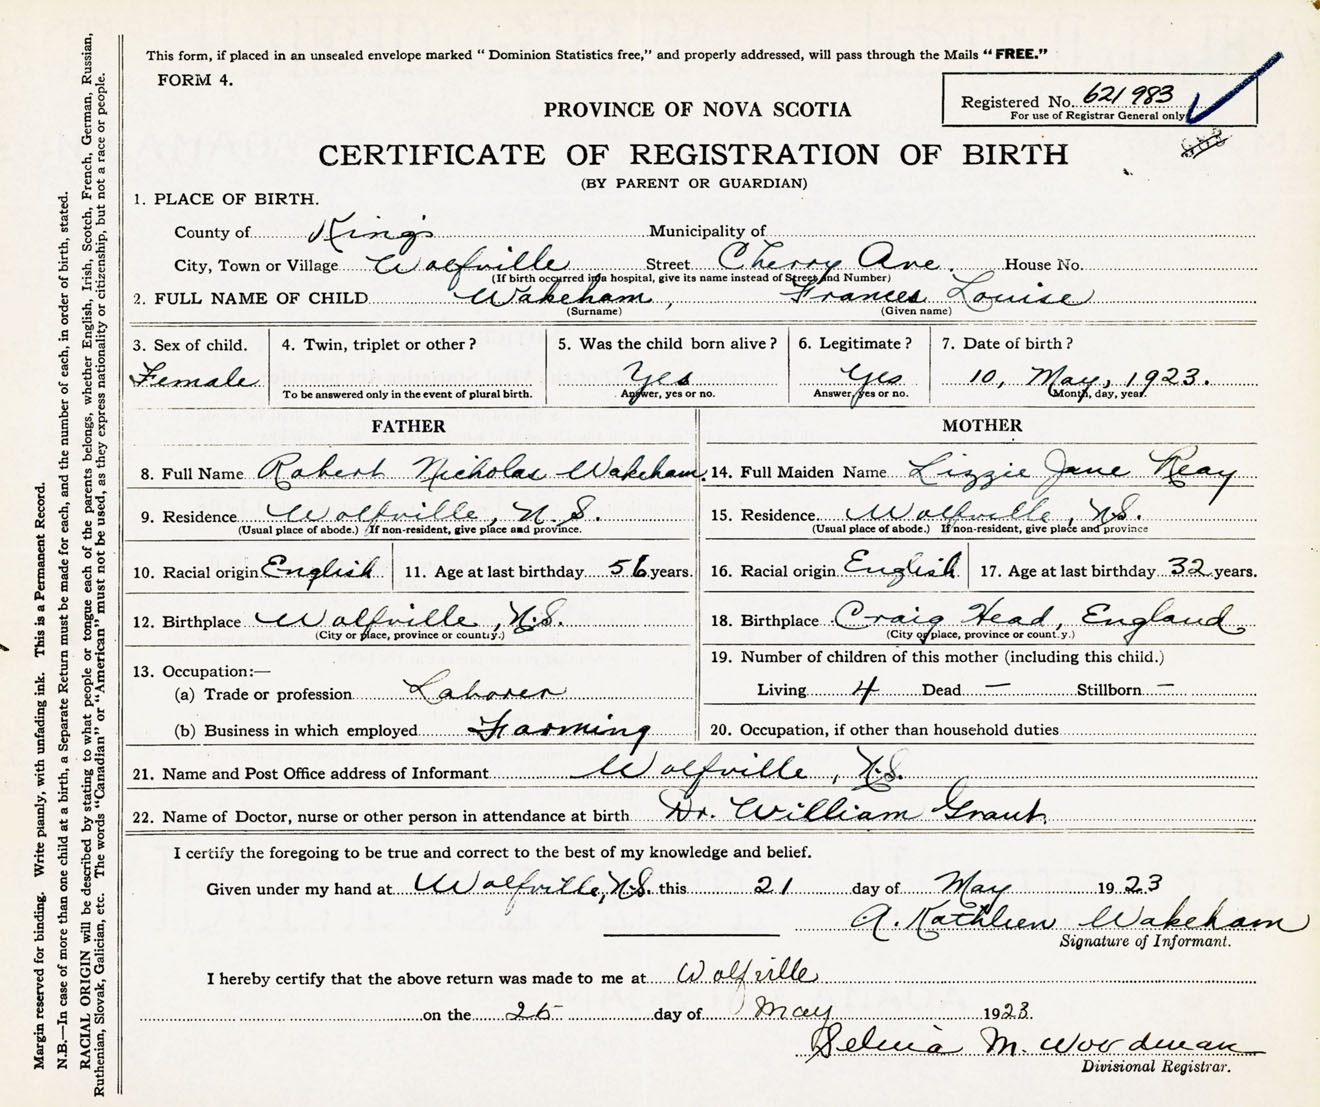 This form, if placed in an unsealed envelope marked “ Dominion Statistics free,” and properly addressed, will pass through the Mails “ FREE.”
FORM 4.
Registered No. 621983
For use of Registrar General only
PROVINCE OF NOVA SCOTIA
CERTIFICATE OF REGISTRATION OF BIRTH
(BY PARENT OR GUARDIAN)
1. PLACE OF BIRTH.
County of King's Municipality of
City, Town or Village Wolfville Street Cherry Ave. House No.
(If birth occurred in a hospital, give its name instead of Street and Number)
2. FULL NAME OF CHILD Wakeham, Frances Louise
(Surname) (Given name)
3. Sex of child. 4. Twin, triplet or other ? 5. Was the child born alive ? 6. Legitimate ? 7. Date of birth ?
Female Yes Yes 10, May, 1923.
To be answered only in the event of plural birth. Answer, yes or no. Answer, yes or no. Month, day, year.
FATHER MOTHER
8. Full Name Robert Nicholas Wakeham. 14. Full Maiden Name Lizzie Jane Reay
9. Residence Wolfville, N.S. 15. Residence Wolfville, N.S.
(Usual place of abode.) If non-resident, give place and province. (Usual place of abode.) If non-resident, give place and province
10. Racial origin English 11. Age at last birthday 56 years. 16. Racial origin English 17. Age at last birthday 32 years.
12. Birthplace Wolfville, N.S. 18. Birthplace Craig Head, England
(City or place, province or country.) (City or place, province or country.)
13. Occupation:— 19. Number of children of this mother (including this child.)
(a) Trade or profession Laborer Living 4 Dead — Stillborn —
(b) Business in which employed Farming 20. Occupation, if other than household duties
21. Name and Post Office address of Informant Wolfville, N.S.
22. Name of Doctor, nurse or other person in attendance at birth Dr. William Grant.
I certify the foregoing to be true and correct to the best of my knowledge and belief.
Given under my hand at Wolfville, N.S. this 21 day of May 1923
A. Kathleen Wakeham
Signature of Informant.
I hereby certify that the above return was made to me at Wolfville
on the 25 day of May 1923.
M. Woodman
Divisional Registrar.
Margin reserved for binding. Write plainly, with unfading ink. This is a Permanent Record.
N.B.—In case of more than one child at a birth, a Separate Return must be made for each, and the number of each, in order of birth, stated.
RACIAL ORIGIN will be described by stating to what people or tongue each of the parents belongs, whether English, Irish, Scotch, French, German, Russian,
Ruthenian, Slovak, Galician, etc. The words “Canadian” or “American” must not be used, as they express nationality or citizenship, but not a race or people.